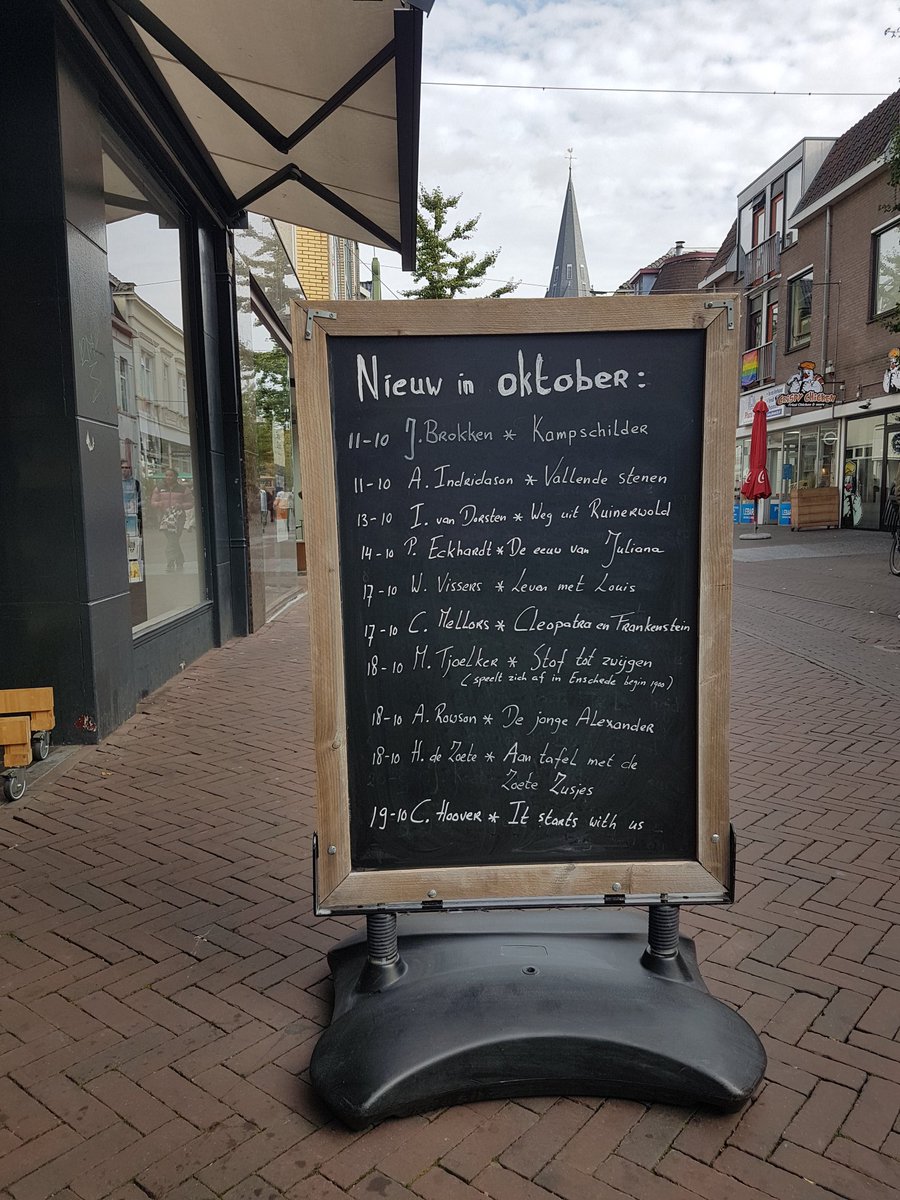 Nieuw in oktober:
11-10 J. Brokken * Kampschilder
11-10 A. Indridason * Vallende stenen
13-10 I. van Dorsten * Weg uit Ruinerwold
14-10 P. Eckhardt * De eeuw van Juliana
17-10 W. Vissers * Leven met Louis
17-10 C. Mellors * Cleopatra en Frankenstein
18-10 M. Tjoelker * Stof tot zwijgen
(speelt zich af in Enschede begin 1900)
18-10 A. Rowson * De jonge Alexander
18-10 H. de Zoete * Aan tafel met de
Zoete Zusjes
19-10 C. Hoover * It starts with us
CRISPY CHICKEN
LEBARA